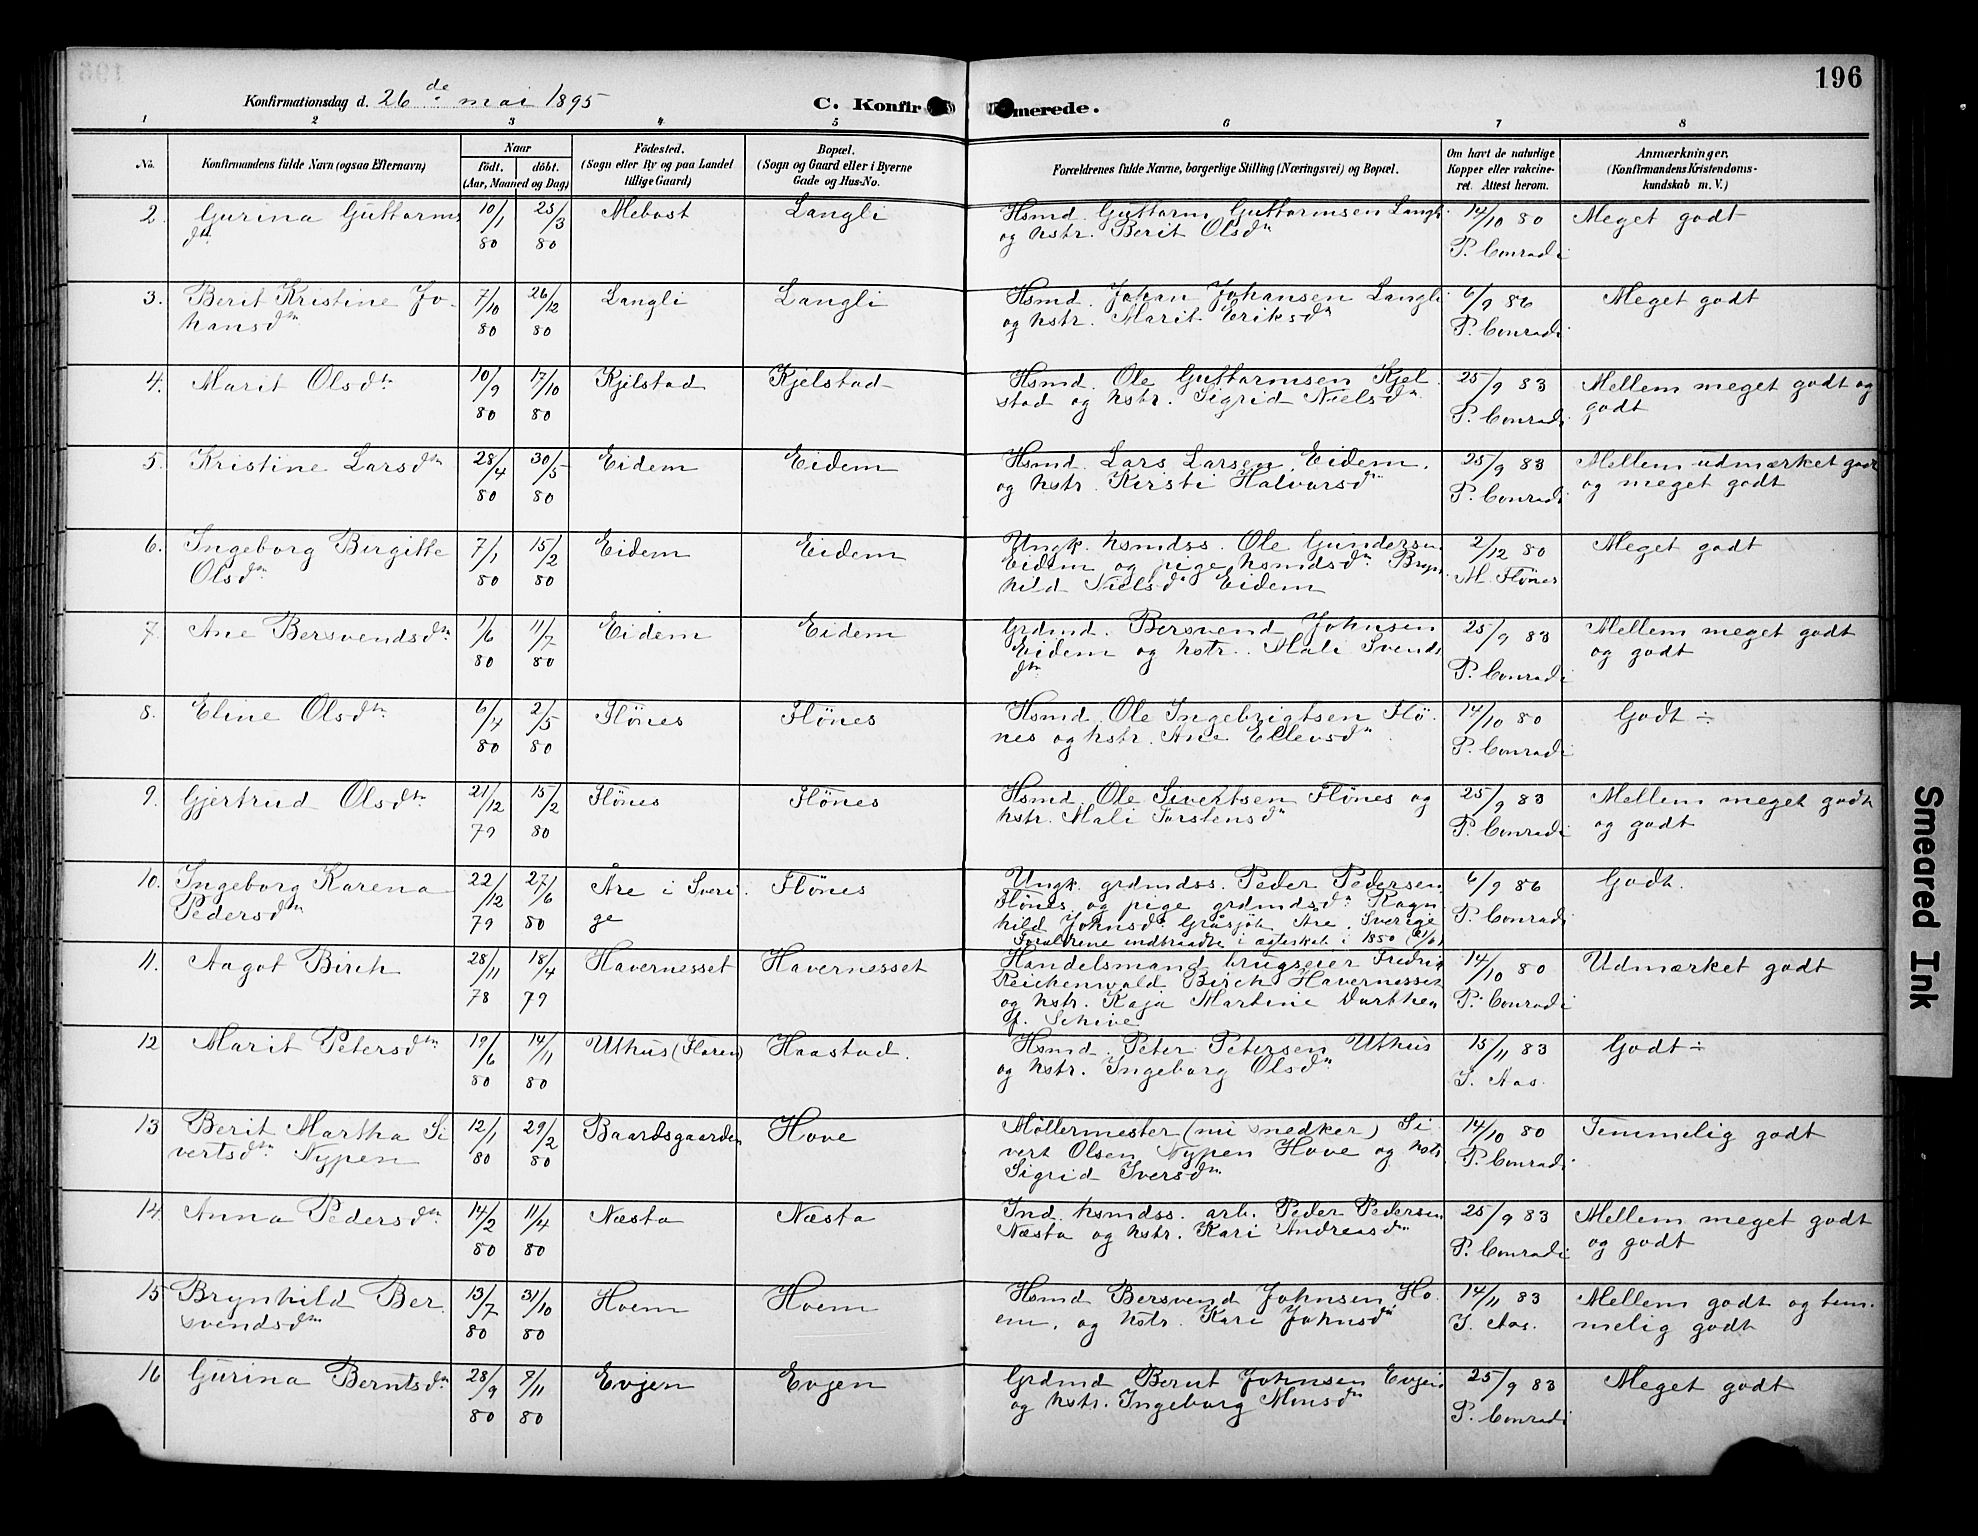 196
Konfirmationsdag d. 26de mai 1895
C. Konfir merede.
1 2 3 4 5 6 7 8
No. Konfirmandens fulde Navn (ogsaa Efternavn) Naar födt. döbt. (Aar, Maaned og Dag) Födested. (Sogn eller By og paa Landet tillige Gaard) Bopæl. (Sogn og Gaard eller i Byerne Gade og Hus-No. Forældrenes fulde Navne, borgerlige Stilling (Næringsvei) og Bopæl. Om havt de naturlige Kopper eller vakcineret. Attest herom. Anmærkninger. (Konfirmandens Kristendomskundskab m. V.)
2. Gurina Guttorms 10/1 25/3 Mebost Langli Hsmd. Guttorm Guttormsen Langli 14/10 80 Meget godt
dtr 80 80 og hstr. Berit Olsdtr P. Conradi
3. Berit Kristine Jo- 7/10 26/12 Langli Langli Hsmd. Johan Johansen Langli 6/9 86 Meget godt
hansdtr 80 80 og hstr. Marit Eriksdtr P. Conradi
4. Marit Olsdtr 10/9 17/10 Kjelstad Kjelstad Hsmd. Ole Guttormsen Kjel- 25/9 83 Mellem meget godt og
80 80 stad og hstr. Sigrid Nielsdtr P. Conradi godt
5. Kristine Larsdtr 28/4 30/5 Eidem Eidem Hsmd. Lars Larsen Eidem. 25/9 83 Mellem udmærket godt
80 80 og hstr. Kirsti Halvorsdtr P. Conradi og meget godt
6. Ingeborg Birgitte 7/1 15/2 Eidem Eidem Ungk. hsmdss. Ole Gundersen 2/12 80 Meget godt
Olsdtr 80 80 Eidem og pige hsmdsdtr Bryn- M. Flönes
hild Nielsdtr Eidem
7. Ane Bersvendsdtr 1/6 11/7 Eidem Eidem Grdmd. Bersvend Johnsen 25/9 83 Mellem meget godt
80 80 Eidem og hstr. Mali Svends P. Conradi og godt
dtr
8. Eline Olsdtr. 6/4 2/5 Flönes Flönes Hsmd. Ole Ingebrigtsen Flö- 14/10 80 Godt ÷
80 80 nes og hstr. Ane Ellevsdtr P. Conradi
9. Gjertrud Olsdtr. 21/12 15/2 Flönes Flönes Hsmd. Ole Sivertsen Flönes og 25/9 83 Mellem meget godt
79 80 hstr. Mali Torstensdtr P. Conradi og godt
10. Ingeborg Karena 22/12 27/6 Åre i Sveri- Flönes Ungk. grdmdss. Peder Pedersen 6/9 86 Godt.
Pedersdtr 79 80 ge Flönes og pige grdmdsdtr Ragn P. Conradi
hild Johnsdtr Gråsjö, Åre, Sverige
Forældrene indtraadte i ægteskab i
11. Aagot Birch 28/11 18/4 Havernesset Havernesset Handelsmand, brugseier Fredrik 14/10 80 Udmærket godt
78 79 Reichenwald Birch Havernesset P. Conradi
og hstr. Kaja Martine Dorthea
f. Schive
12 Marit Petersdtr 19/6 14/11 Uthus (Floren) Haastad. Hsmd. Peter Petersen Uthus 15/11 83 Godt ÷
80 80 og hstr. Ingeborg Olsdtr J. Aas.
13 Berit Martha Si 12/1 29/2 Baardsgaarden Hove Möllermester (nu snedker) Si 14/10 80 Temmelig godt
vertsdtr Nypen 80 80 vert Olsen Nypen Hove og hstr P. Conradi
Sigrid Iversdtr
14 Anna Pedersdtr. 14/2 11/4 Næsta Næsta Ind. hsmdss. arb. Peder Pedersen 25/9 83 Mellem meget godt
80 80 Næsta og hstr. Kari Andreasdtr P. Conradi og godt
15 Brynhild Ber 13/7 31/10 Hoem Hoem Hsmd Bersvend Johnsen Ho- 14/11 83 Mellem godt og tem-
svendsdtr 80 80 em. og hstr. Kari Johnsdtr J. Aas. melig godt
16 Gurina Berntsdtr 28/9 9/11 Evjen Evjen Grdmd Bernt Johnsen Evjen 25/9 83 Meget godt
80 80 og hstr. Ingeborg Monsdtr P. Conradi
Smeared Ink